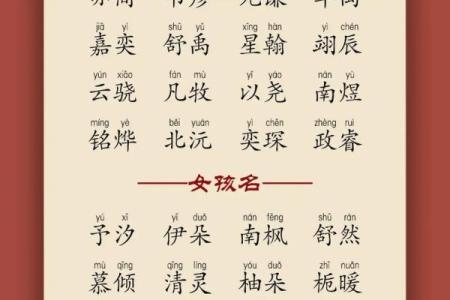 jiā yì shū yǔ xīng hàn yì chén
嘉奕 舒禹 星翰 翊辰
yún xiāo fán mù yǐ yáo nán yù
云骁 凡牧 以尧 南煜
míng yè běi yuán yì chēn zhèng ruì
铭烨 北沅 奕琛 政睿
女孩名
yú xī yī duǒ nán fēng shū rán
予汐 伊朵 南枫 舒然
mù qīng qīng líng yòu duǒ zhī nuǎn
慕倾 清灵 柚朵 栀暖